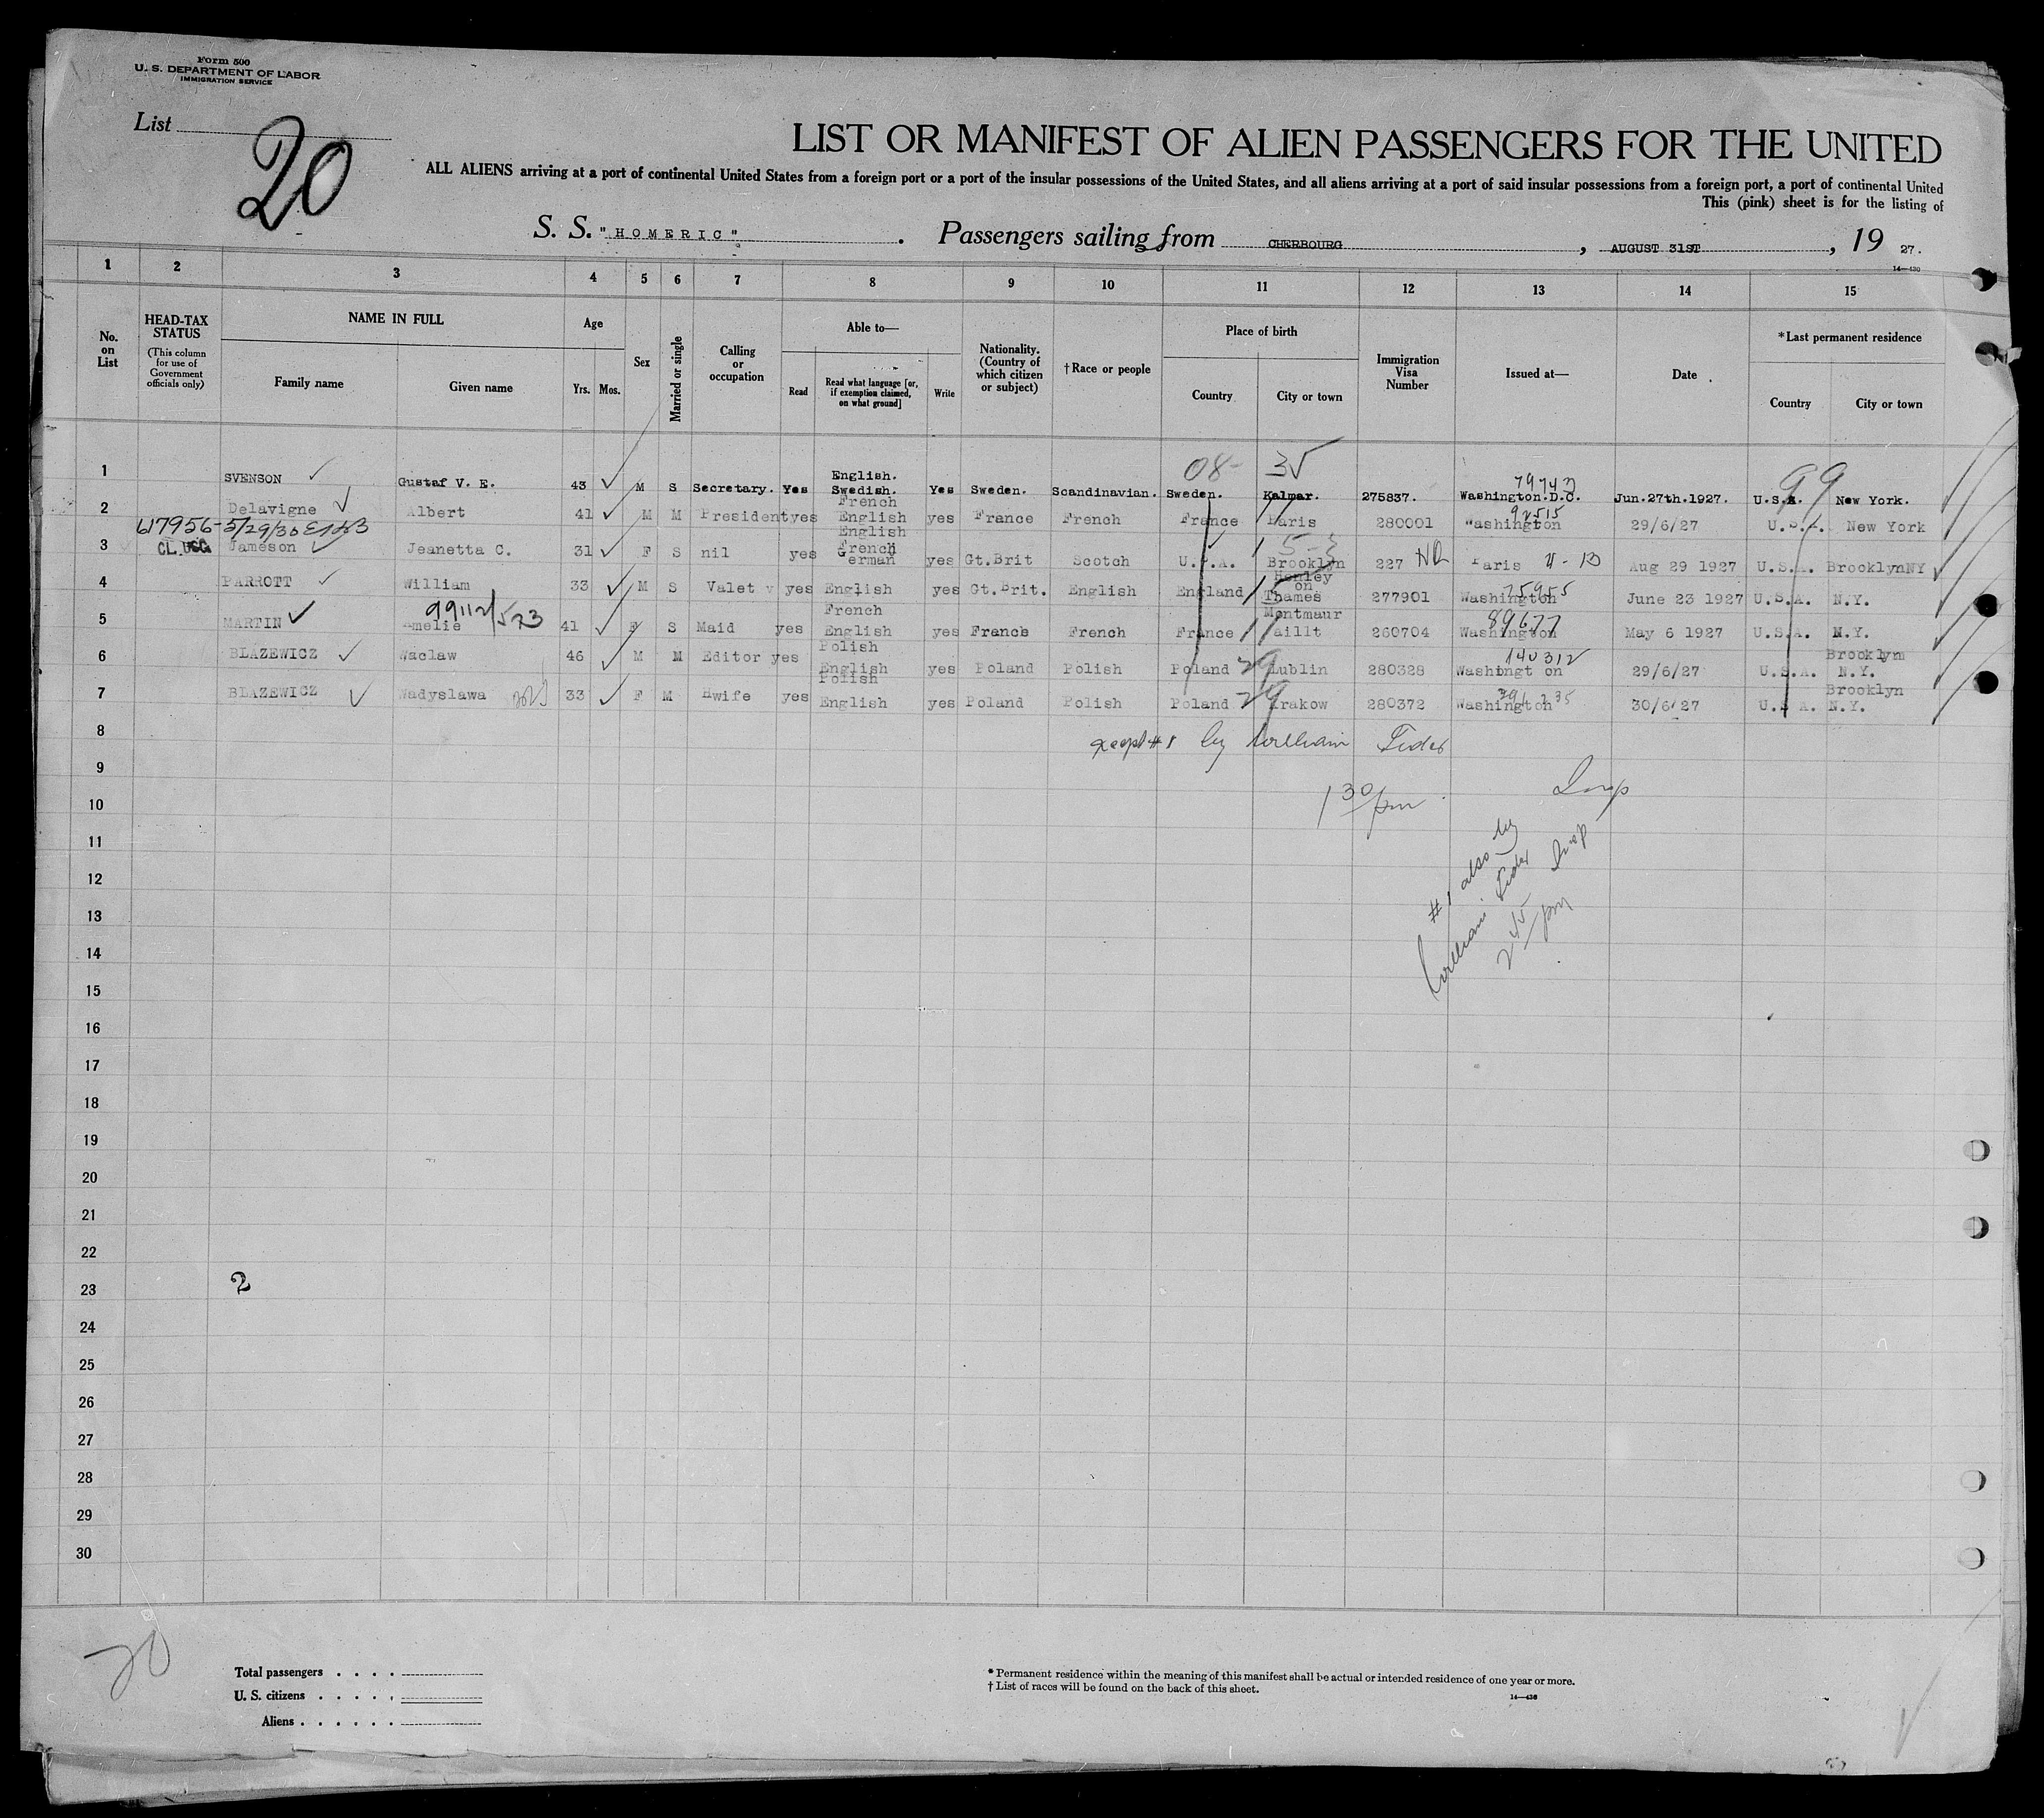 Form 500
U. S. DEPARTMENT OF LABOR
IMMIGRATION SERVICE
List
20
LIST OR MANIFEST OF ALIEN PASSENGERS FOR THE UNITED
ALL ALIENS arriving at a port of continental United States from a foreign port or a port of the insular possessions of the United States, and all aliens arriving at a port of said insular possessions from a foreign port, a port of continental United
This (pink) sheet is for the listing of
S. S. "HOMERIC". Passengers sailing from CHERBOURG, AUGUST 31ST, 19 27.
14—430
1 2 3 4 5 6 7 8 9 10 11 12 13 14 15
No. on List
HEAD-TAX STATUS
(This column for use of Government officials only)
NAME IN FULL
Family name
Given name
Age
Yrs. Mos.
Sex
Married or single
Calling or occupation
Able to—
Read
Read what language [or, if exemption claimed, on what ground]
Write
Nationality. (Country of which citizen or subject)
†Race or people
Place of birth
Country
City or town
Immigration Visa Number
Issued at—
Date
*Last permanent residence
Country
City or town
08- 35 79743 99
1 SVENSON Gustaf V. E. 43 M S Secretary. Yes English. Swedish. Yes Sweden. Scandinavian. Sweden. Kalmar. 275837. Washington.D.C. Jun.27th.1927. U.S.A. New York.
92515
2 Delavigne Albert 41 M M President yes French English yes France French France Paris 280001 Washington 29/6/27 U.S.A. New York
617956-5/29/30
3 CL. USC Jameson Jeanetta C. 31 F S nil yes English French German yes Gt.Brit Scotch U.S.A. Brooklyn 227 Paris Aug 29 1927 U.S.A. BrooklynNY
75955
4 PARROTT William 33 M S Valet yes English yes Gt.Brit. English England Henley on Thames 277901 Washington June 23 1927 U.S.A. N.Y.
99112/523 89677
5 MARTIN Amelie 41 F S Maid yes French English yes France French France Montmaur 260704 Washington May 6 1927 U.S.A. N.Y.
140312
6 BLAZEWICZ Waclaw 46 M M Editor yes Polish English yes Poland Polish Poland 29 Lublin 280328 Washingt on 29/6/27 U.S.A. Brooklyn N.Y.
7 BLAZEWICZ Wadyslawa 33 F M Hwife yes Polish English yes Poland Polish Poland 29 Krakow 280372 Washington 30/6/27 U.S.A. Brooklyn N.Y.
8 except #1 by William
9
10 1 30/pm Insp
11
12 #1 also by
13 William Insp
14 2 45/pm
15
16
17
18
19
20
21
22
23 2
24
25
26
27
28
29
30
20
Total passengers . . . .
U. S. citizens . . . . .
Aliens . . . . . .
* Permanent residence within the meaning of this manifest shall be actual or intended residence of one year or more.
† List of races will be found on the back of this sheet.
14—430